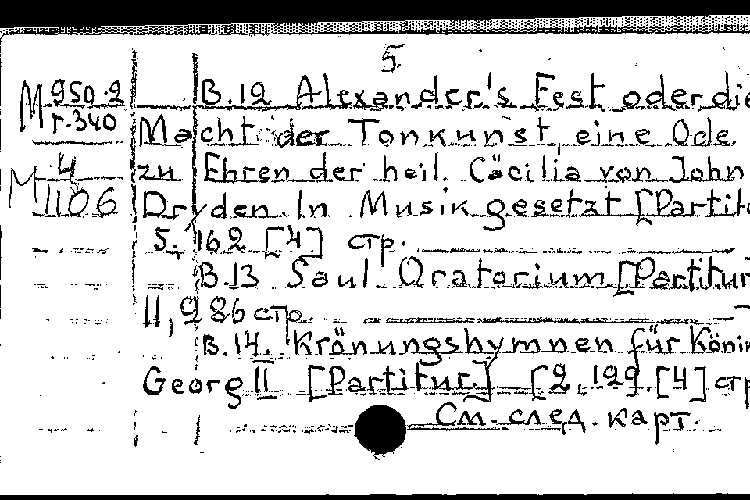 5.
M 950.2 B.12 Alexander's Fest oder die
r.340 Macht der Tonkunst, eine Ode
M 4 zu Ehren der heil. Cäcilia von John
1106 Dryden. In Musik gesetzt [Partit
5, 162 [4] стр.
B.13 Saul. Oratorium [Partitur
II, 286 стр.
B.14. Krönungshymnen für Köni
Georg II [Partitur.] [2, 129. [4] стр
См. след. карт.